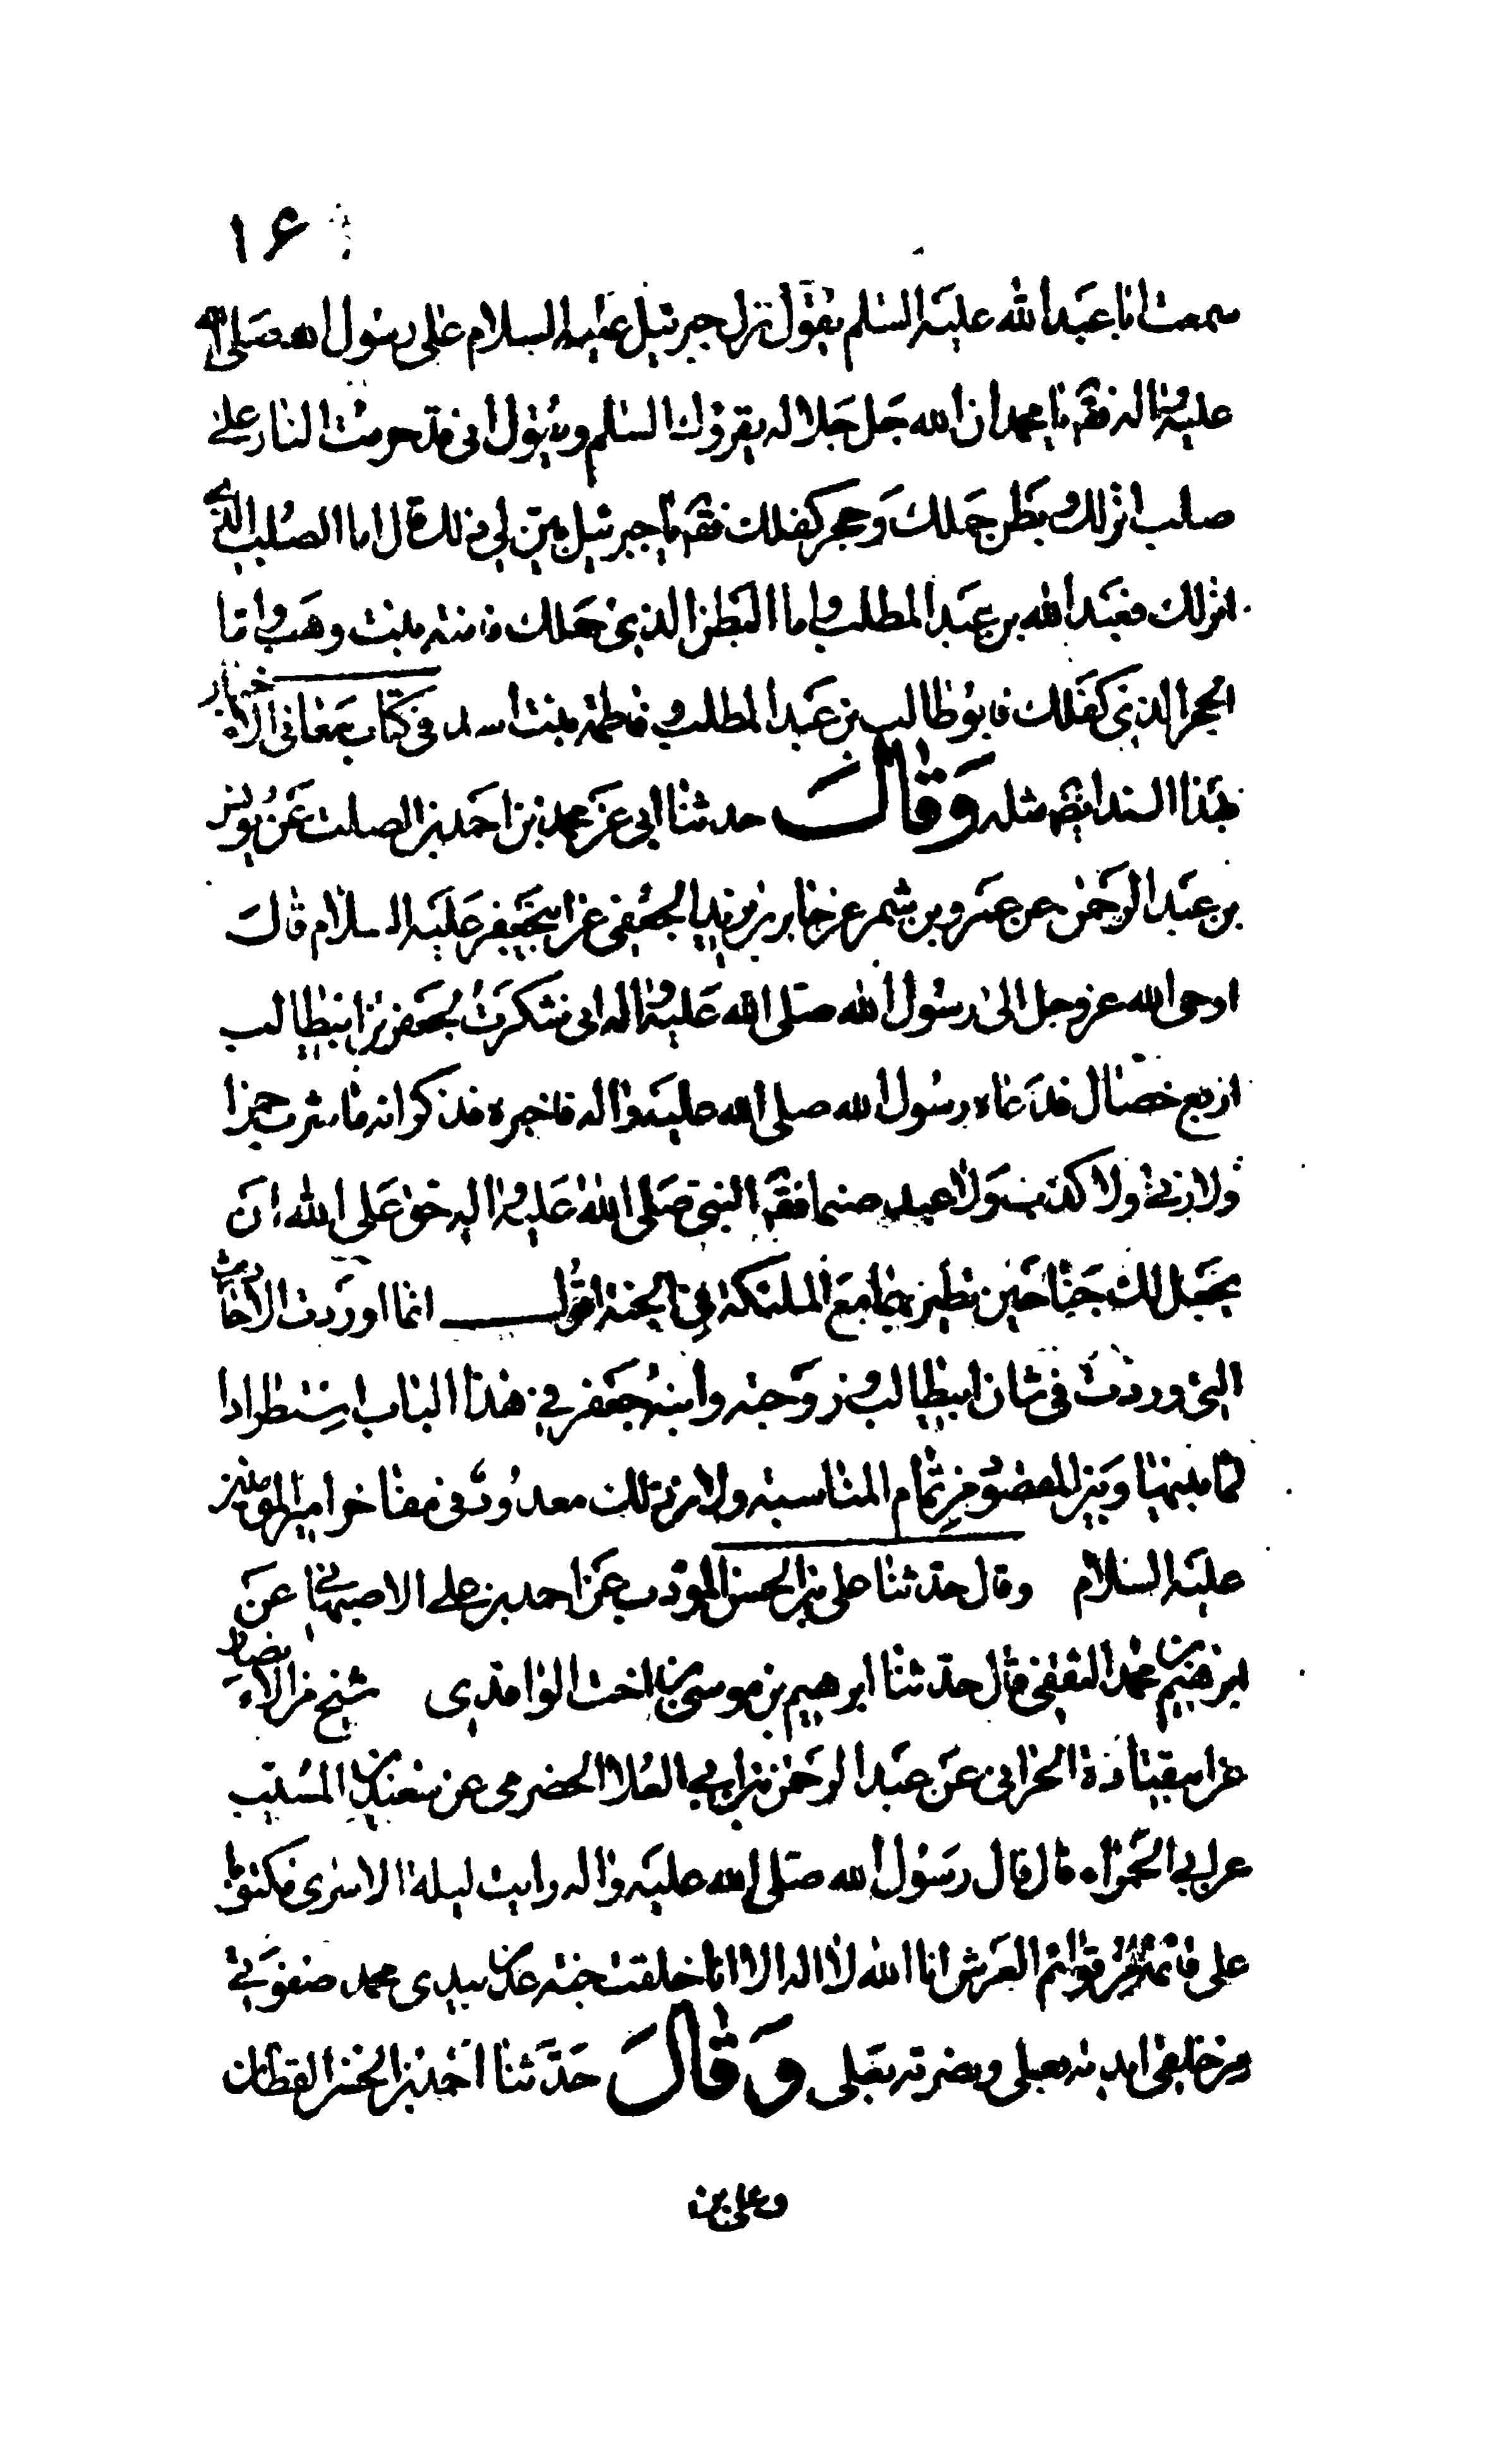 ١۶
سمعت ابا عبد الله عليه السلم يقول نزل جبرئيل عليه السلام على رسول الله صلى الله
عليه واله فقه يا محمد ان الله جل جلاله يقرؤك السلم ويقول انى قد حرمت النار على
صلب انزلك وبطن حملك وحجر كفلك فقه يا جبرئيل بين لى ذلك قال اما الصلب الذى
انزلك فعبد الله بن عبد المطلب واما البطن الذى حملك فامنه بنت وهب واما
الحجر الذى كفلك فابو طالب بن عبد المطلب وفاطمة بنت اسد فى كتاب معانى الاخبار
بهذا السند ايضه مثله وقال حدثنا ابى عن محمد بن احمد بن الصلت عن يونس
بن عبد الرحمن عن عمرو بن شمر عن جابر بن يزيد الجعفى عن ابيجعفر عليه السلام قال
اوحى الله عز وجل الى رسول الله صلى الله عليه واله انى شكرت لجعفر بن ابيطالب
اربع خصال فدعاه رسول الله صلى الله عليه واله فاخبره فذكر انه ما شرب خمرا
ولا زنى ولا كذب ولا عبد صنما فقه النبى صلى الله عليه واله حق على الله ان
يجعل لك جناحين تطير بهما مع الملئكة فى الجنة اقول انما اوردت الاحاديث
التى وردت فى شان ابيطالب وزوجته وابنه جعفر في هذا الباب استطرادا
لما بينها وبين المقصود من تمام المناسبة ولان ذلك معدود فى مفاخر امير المؤمنين
عليه السلام وقال حدثنا على بن الحسن المؤدب عن احمد بن على الاصبهانى عن
ابرهيم بن محمد الثقفى قال حدثنا ابرهيم بن موسى بن اخت الواقدى شيخ من الانصار
عن ابيقتادة الحرانى عن عبد الرحمن بن ابى العلا الحضرمى عن سعيد بن المسيب
عن ابى الحمراء قال قال رسول الله صلى الله عليه واله رايت ليلة الاسرى مكتوبا
على قائمة من قوائم العرش انا الله لا اله الا انا خلقت جنة عدن بيدى محمد صفوتى
من خلقى ايدته بعلى ونصرته بعلى وقال حدثنا احمد بن الحسن القطان
وعلى بن